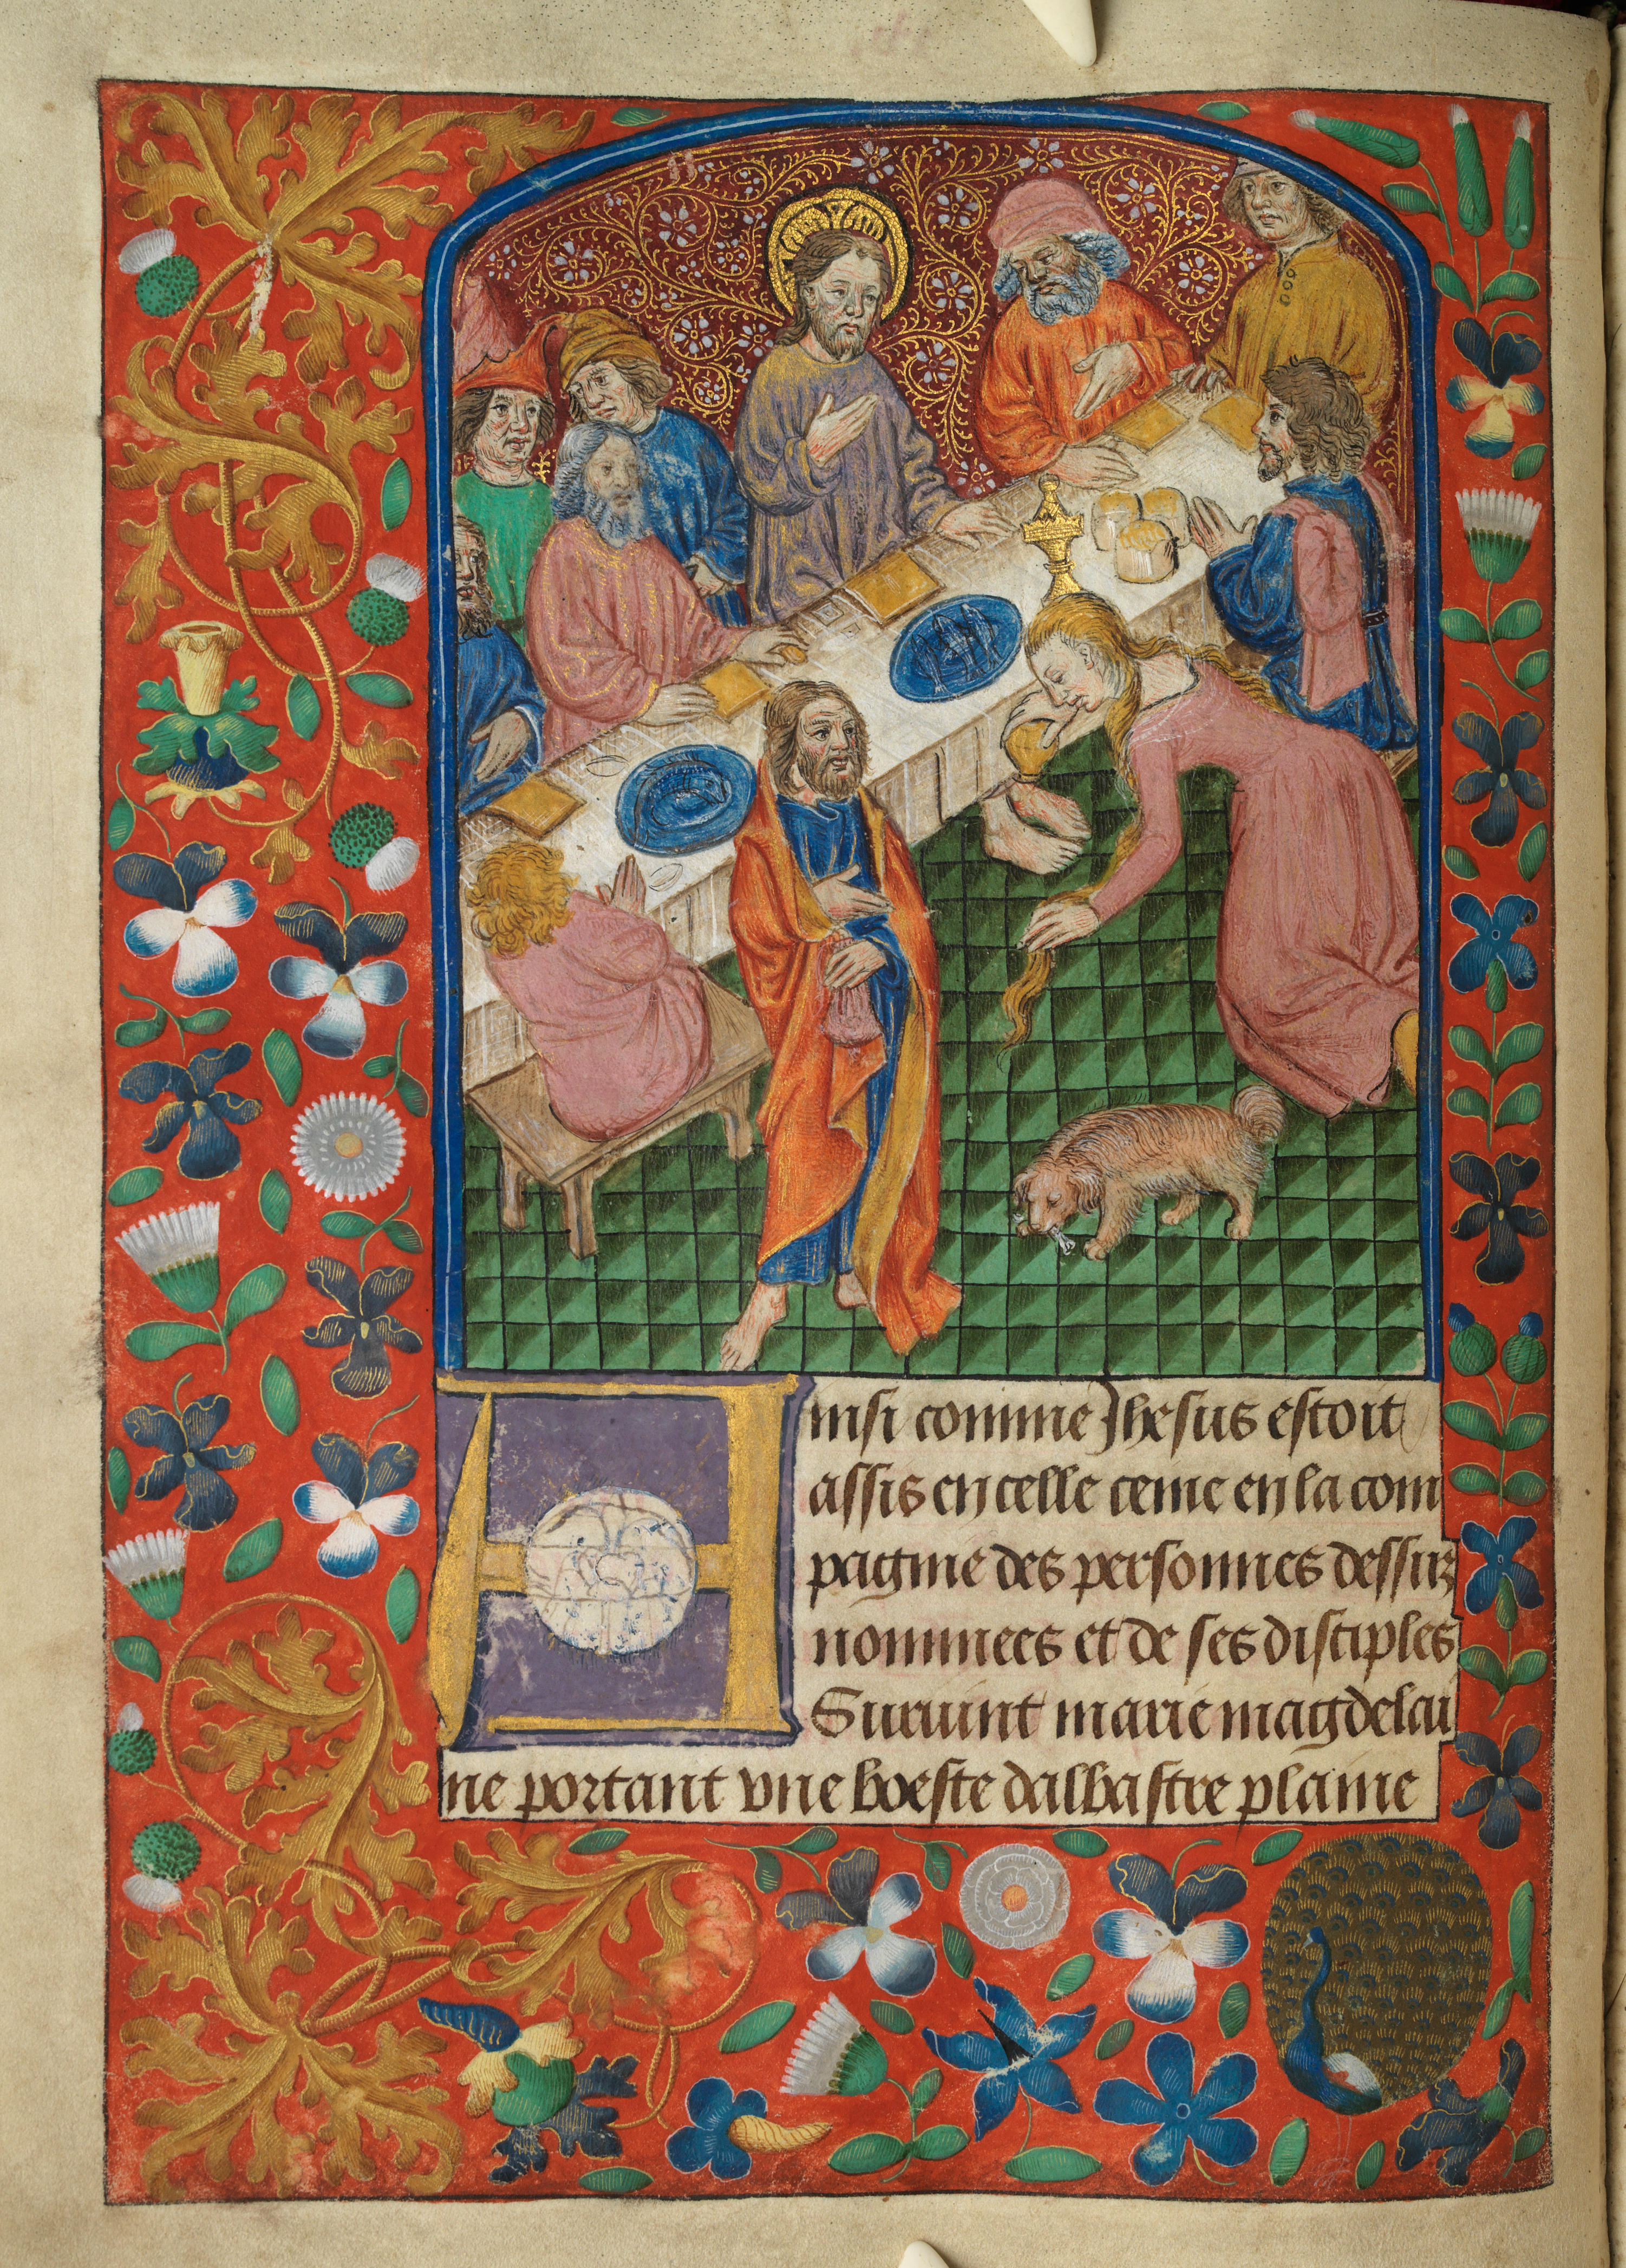 Ainsi comme Jhesus estoit
assis en celle cenne en la com
pagnie des personnes dessuz
nommees et de ses disciples
Suruint marie magdelai
ne portant vne boeste dalbastre plaine